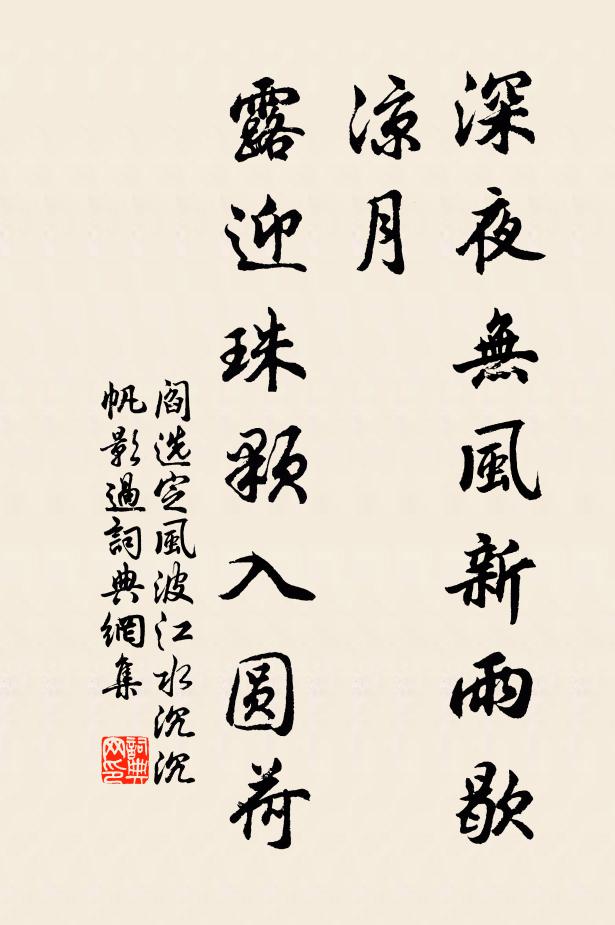 深夜無風新雨歇
涼月
露迎珠顆入圓荷
閻选定風波江水沉沉
帆影過詞典網集
詞典
网印